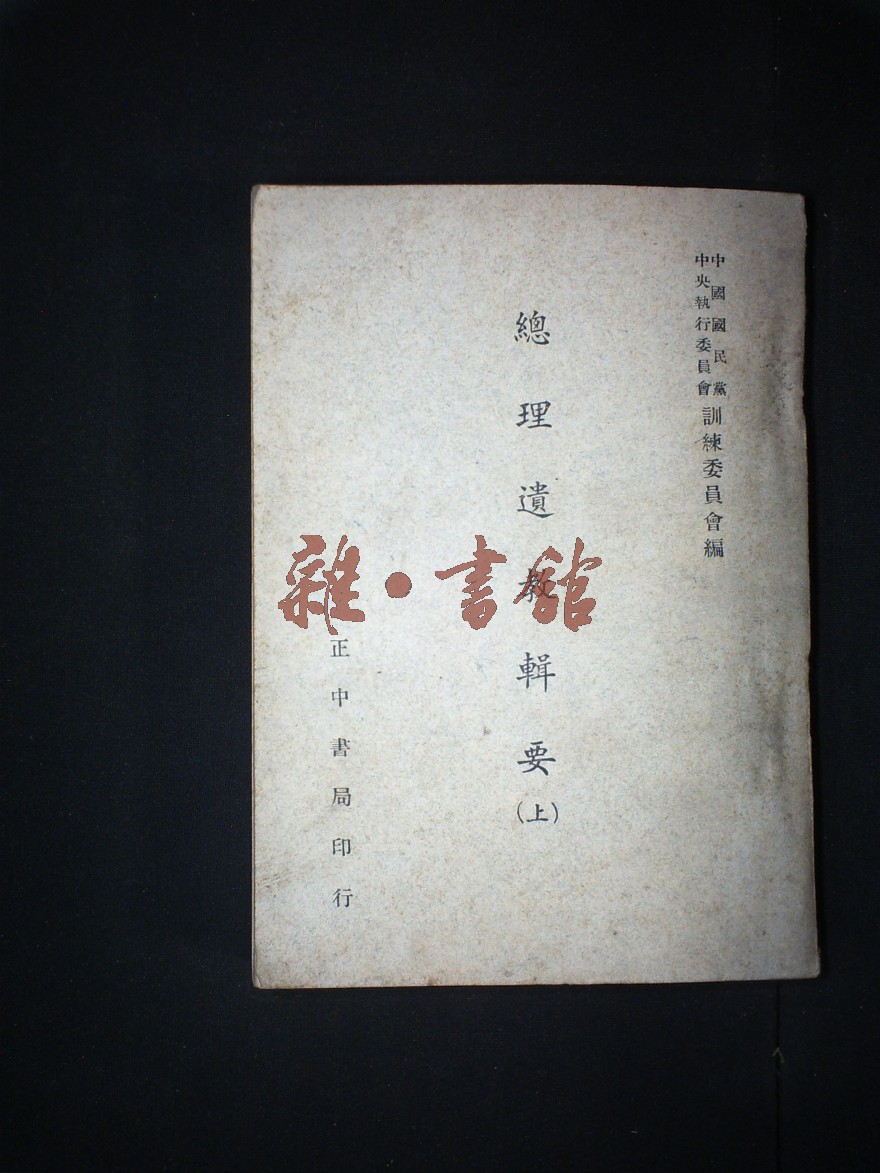 中國國民黨
中央執行委員會
訓練委員會編
總理遺教輯要(上)
正中書局印行
雜·書館